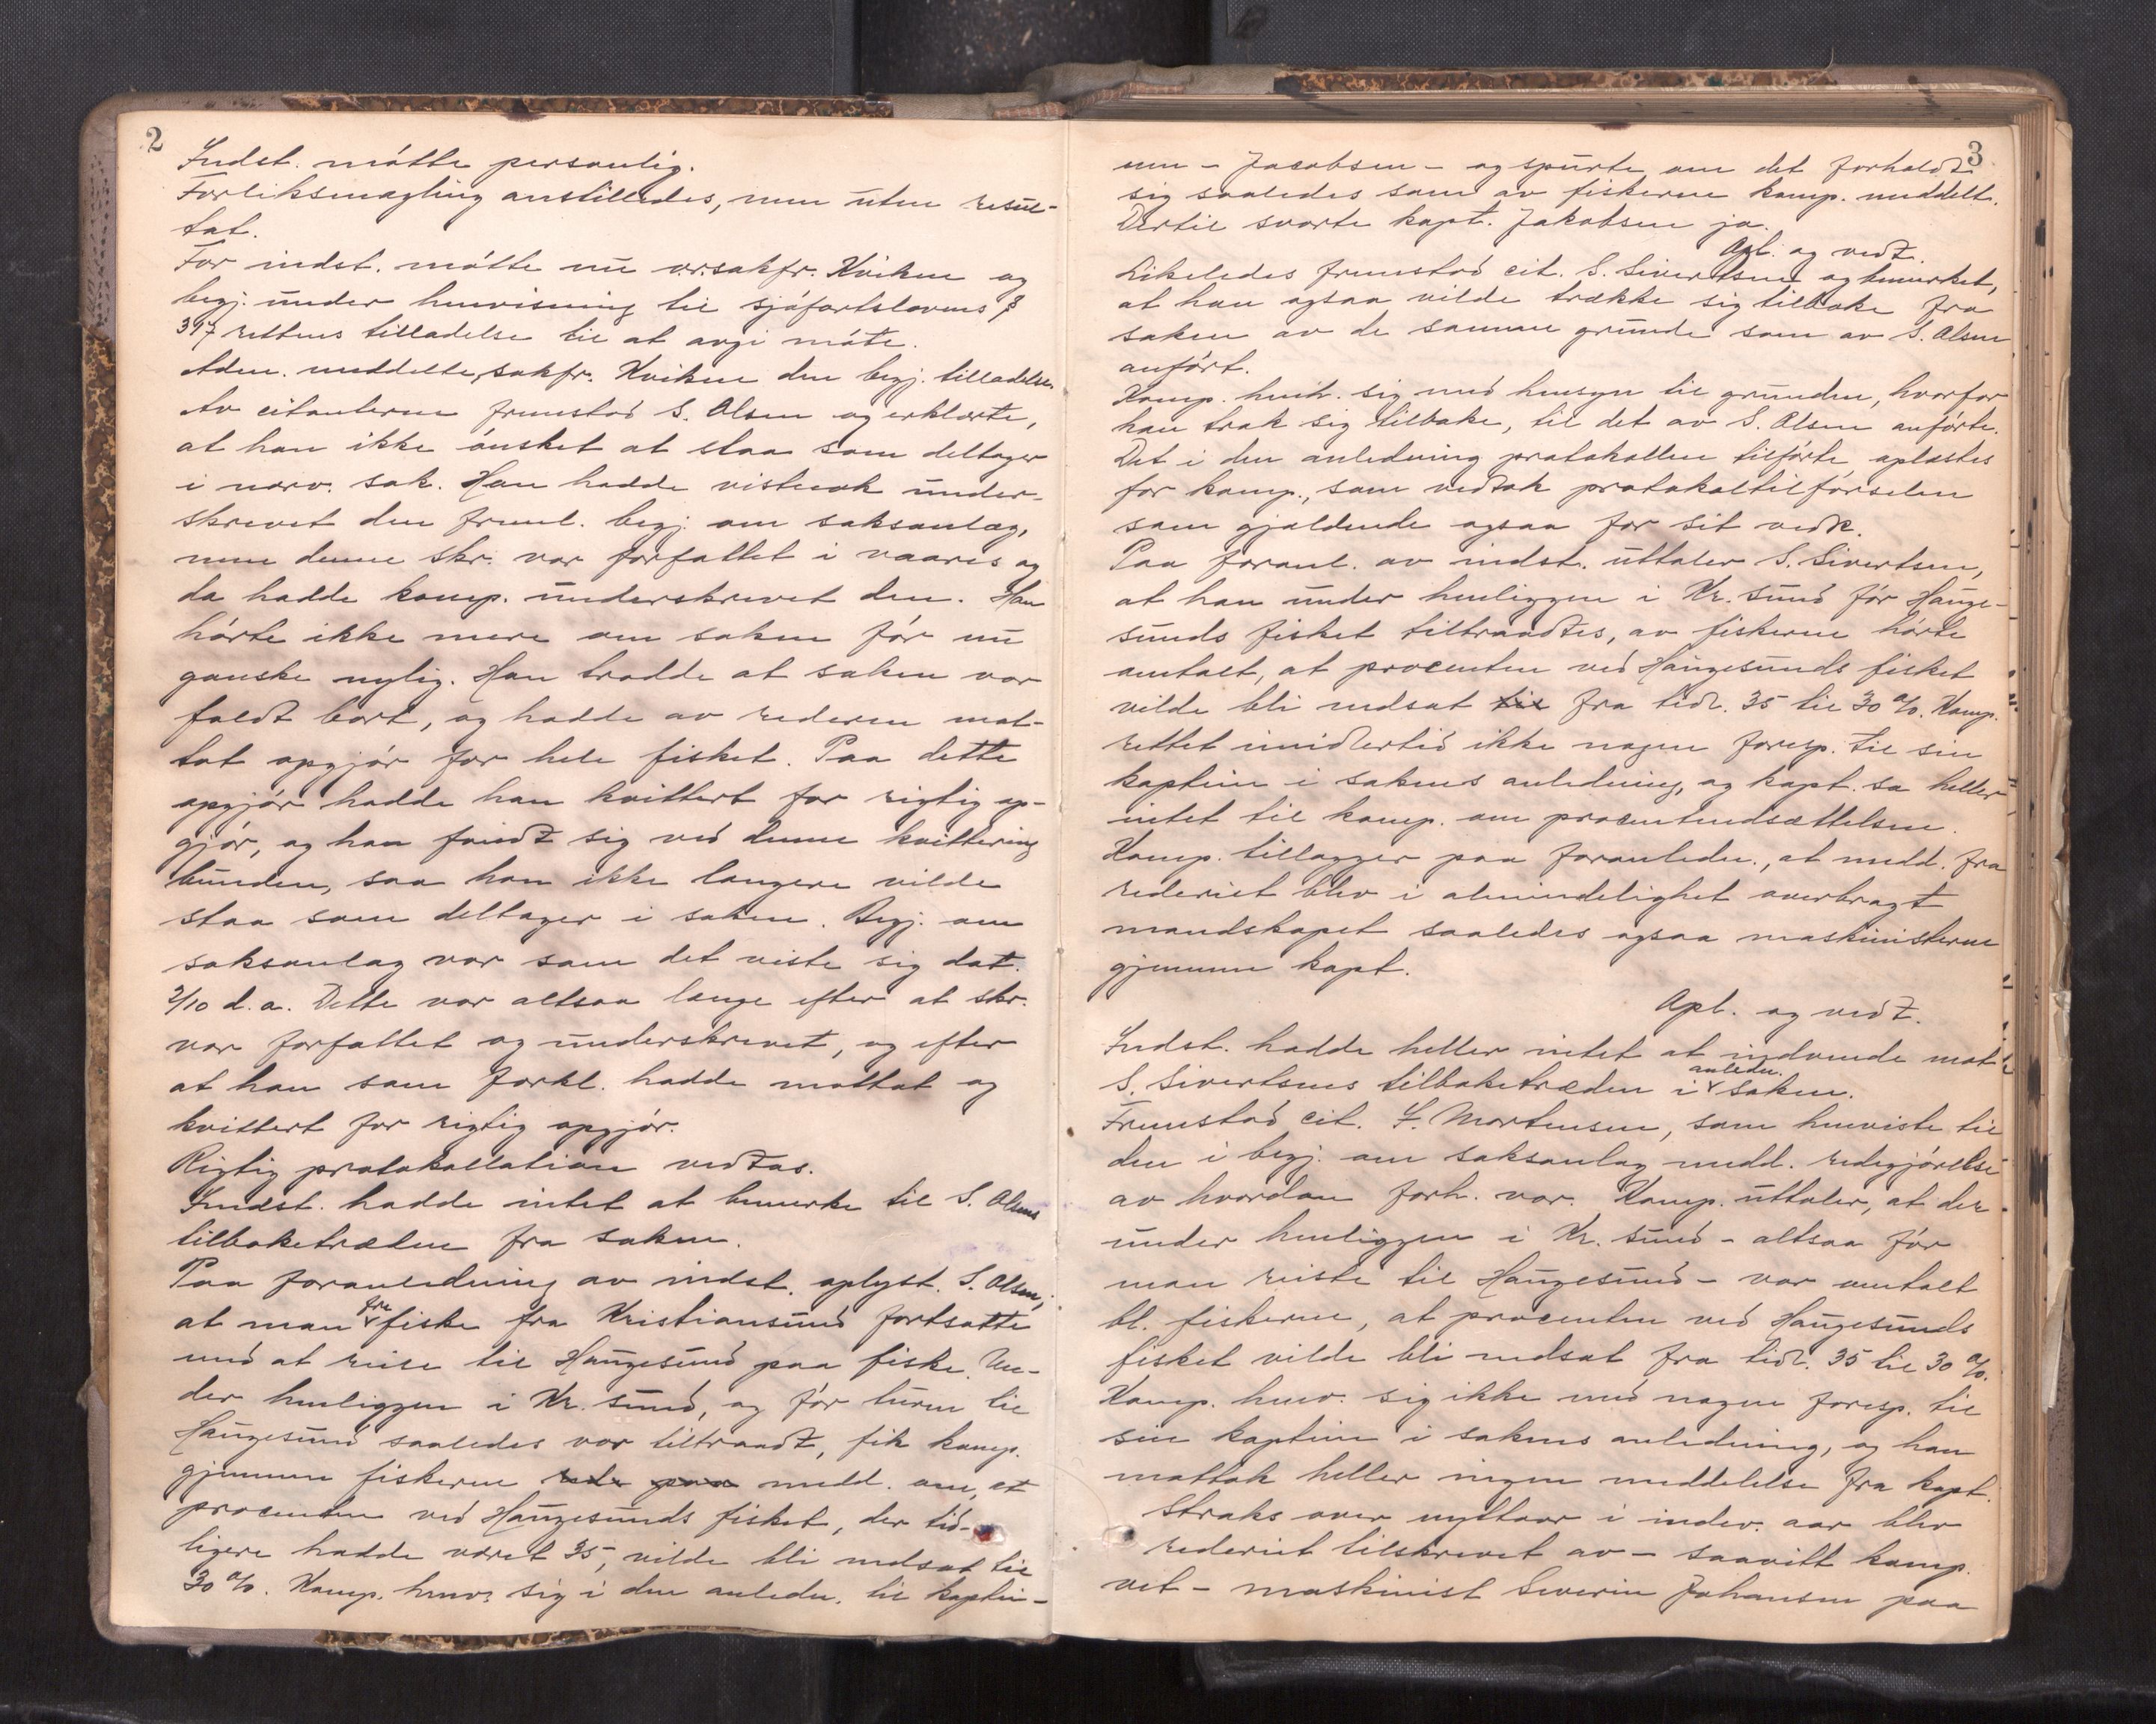 2
Indst. møtte personlig.
Forliksmægling anstilledes, men uten resul-
tat.
For indst. møtte nu o.r.sakfr. Kviken og
begj. under henvisning til sjøfartslovens §
317 rettens tilladelse til at avgi møte.
Adm. meddelte sakfr. Kviken den begj. tilladelse.
Av citanterne fremstod S. Olsen og erklærte,
at han ikke ønsket at staa som deltager
i nærv. sak. Han hadde vistnok under-
skrevet den freml. begj. om saksanlæg,
men denne skr. var forfattet i vaares og
da hadde komp. underskrevet den. Han
hørte ikke mere om saken før nu
ganske nylig. Han trodde at saken var
faldt bort, og hadde av rederen mot-
tat opgjør for hele fisket. Paa dette
opgjør hadde han kvittert for rigtig op-
gjør, og han fandt sig ved denne kvittering
bunden, saa han ikke længere vilde
staa som deltager i saken. Begj. om
saksanlæg var som det viste sig dat.
2/10 d.a. Dette var altsaa længe efter at skr.
var forfattet og underskrevet, og efter
at han som forkl. hadde mottat og
kvittert for rigtig opgjør.
Rigtig protokollation vedtas.
Indst. hadde intet at bemerke til S. Olsens
tilbaketræden fra saken.
Paa foranledning av indst. oplyst. S. Olsen,
at man fra fiske fra Kristiansund fortsatte
med at reise til Haugesund paa fiske. Un-
der henliggen i Kr. sund, og før turen til
Haugesund saaledes var tiltraadt, fik komp.
gjennem fiskerne rede paa medd. om, at
procenten ved Haugesunds fisket, der tid-
ligere hadde været 35, vilde bli nedsat til
30 %. Komp. henv. sig i den anledn. til kaptei-
3
nen - Jacobsen - og spurte om det forholdt
sig saaledes som av fiskerne komp. meddelt.
Dertil svarte kapt. Jakobsen ja.
Opl. og vedt.
Likeledes fremstod cit. S. Sivertsen og bemerket,
at han ogsaa vilde trække sig tilbake fra
saken av de samme grunde som av S. Olsen
anført.
Komp. henh. sig med hensyn til grunden, hvorfor
han trak sig tilbake, til det av S. Olsen anførte.
Det i den anledning protokollen tilførte oplæstes
for komp., som vedtok protokoltilførselen
som gjældende ogsaa for sit vedk.
Paa foranl. av indst. uttaler S. Sivertsen,
at han under henliggen i Kr. sund før Hauge-
sunds fisket tiltraadtes, av fiskerne hørte
omtalt, at procenten ved Haugesunds fisket
vilde bli nedsat til fra tidl. 35 til 30 %. Komp.
rettet imidlertid ikke nogen foresp. til sin
kaptein i sakens anledning, og kapt. sa heller
intet til komp. om procentnedsættelsen.
Komp. tillægger paa foranledn., at medd. fra
rederiet blev i almindelighet overbragt
mandskapet saaledes ogsaa maskinisterne
gjennem kapt.
Opl. og vedt.
Indst. hadde heller intet at indvende mot
S. Sivertsens tilbaketræden i anledn. saken.
Fremstod cit. S. Mortensen, som henviste til
den i begj. om saksanlæg medd. redegjørelse
av hvordan forh. var. Komp. uttaler, at der
under henliggen i Kr. sund - altsaa før
man reiste til Haugesund - var omtalt
bl. fiskerne, at procenten ved Haugesunds
fisket vilde bli nedsat fra tidl. 35 til 30 %.
Komp. henv. sig ikke med nogen foresp. til
sin kaptein i sakens anledning, og han
mottok heller ingen meddelelse fra kapt.
Straks over nyttaar i indev. aar blev
rederiet tilskrevet av - saavitt komp.
vet - maskinist Severin Johansen paa